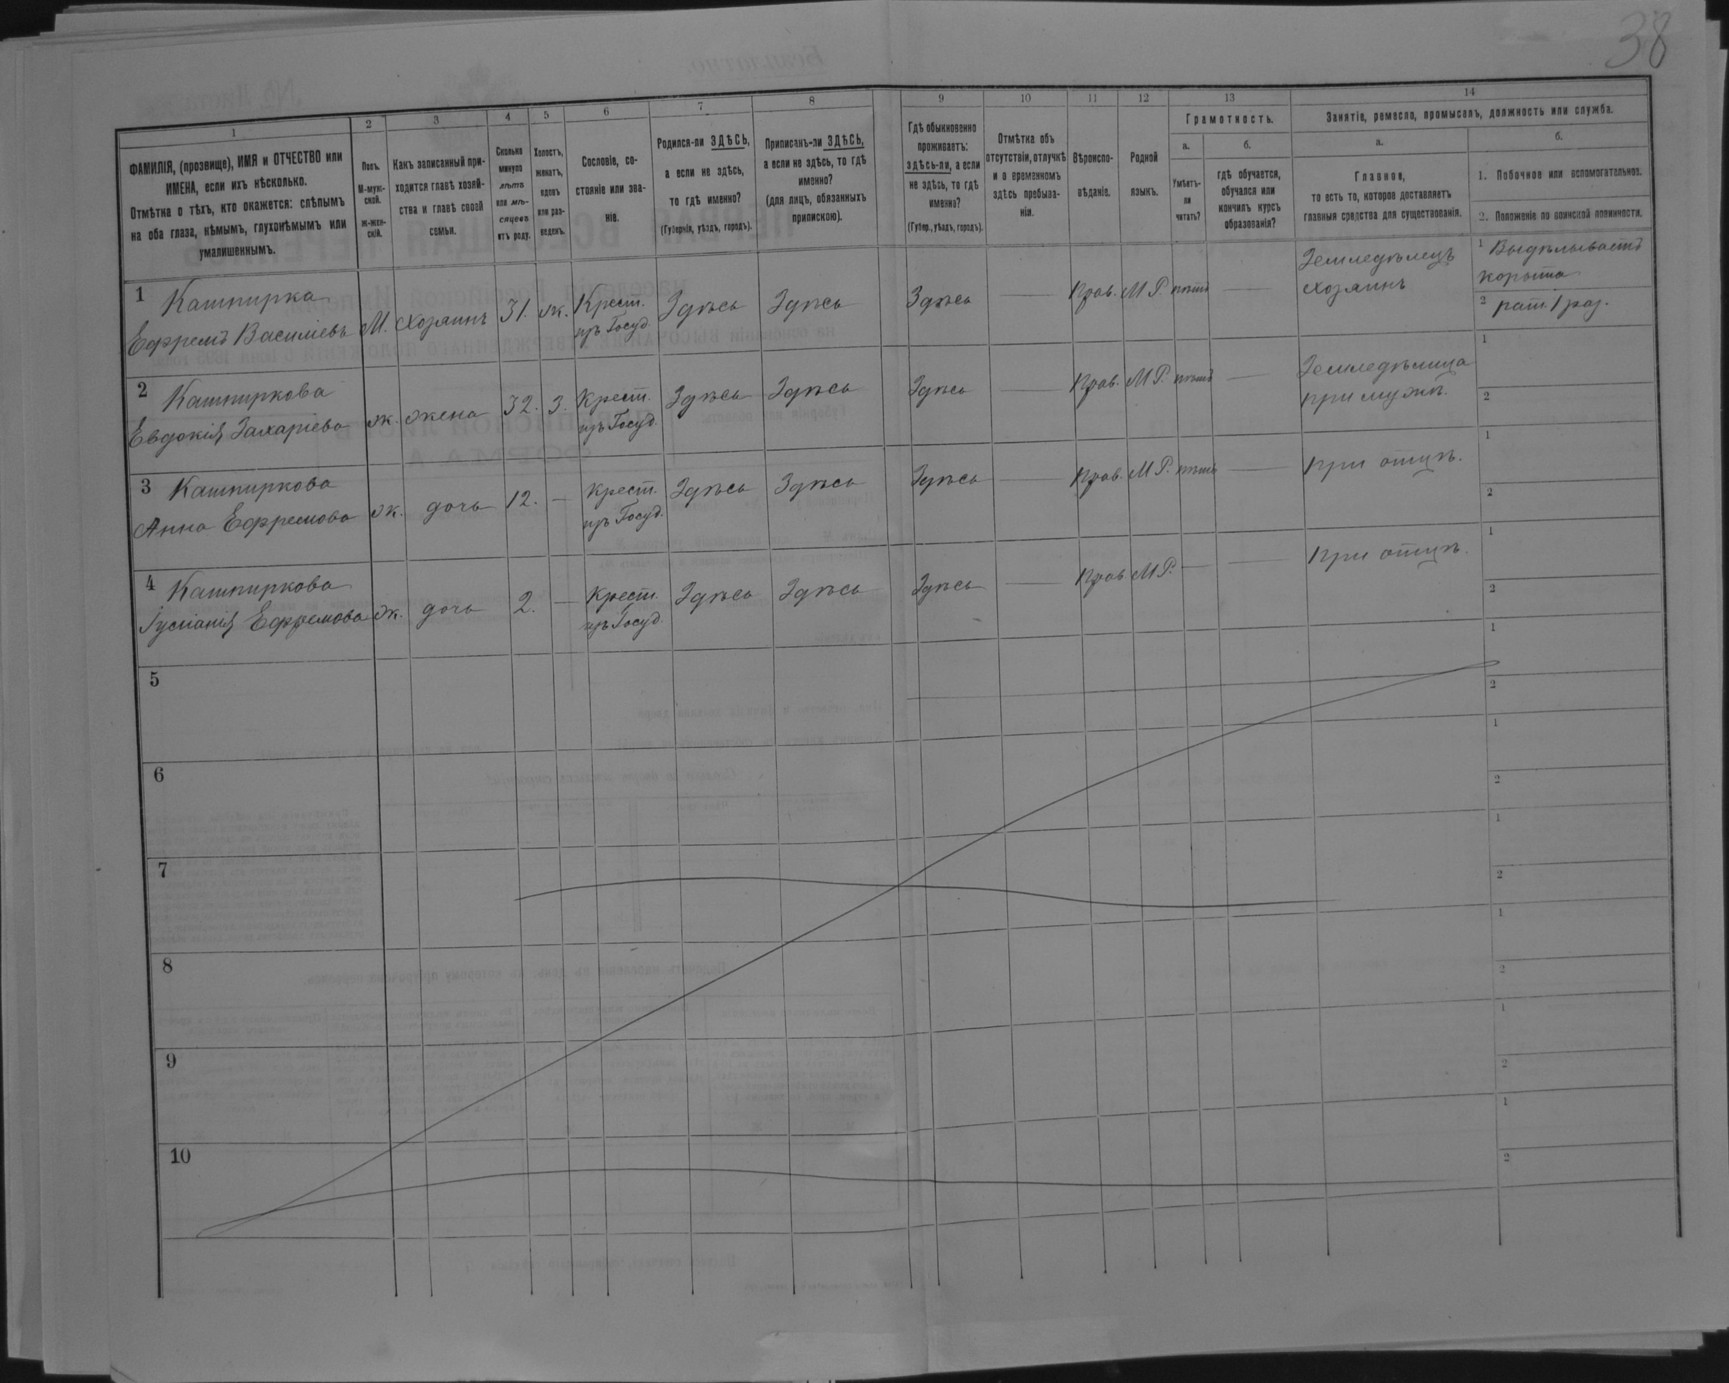 38
1
2
3
4
5
6
7
8
9
10
11
12
13
14
ФАМИЛІЯ, (прозвище), ИМЯ и ОТЧЕСТВО или
ИМЕНА, если ихъ нѣсколько.
Отмѣтка о тѣхъ, кто окажется: слѣпымъ
на оба глаза, нѣмымъ, глухонѣмымъ или
умалишеннымъ.
Полъ.
М-муж-
ской.
Ж-жен-
скій.
Какъ записанный при-
ходится главѣ хозяй-
ства и главѣ своей
семьи.
Сколько
минуло
лѣтъ
или мѣ-
сяцевъ
отъ роду.
Холостъ,
женатъ,
вдовъ
или раз-
веденъ.
Сословіе, со-
стояніе или зва-
ніе.
Родился-ли ЗДѢСЬ,
а если не здѣсь,
то гдѣ именно?
(Губернія, уѣздъ, городъ).
Приписанъ-ли ЗДѢСЬ,
а если не здѣсь, то гдѣ
именно?
(для лицъ, обязанныхъ
припискою).
Гдѣ обыкновенно
проживаетъ:
здѣсь-ли, а если
не здѣсь, то гдѣ
именно?
(Губер., уѣздъ, городъ).
Отмѣтка объ
отсутствіи, отлучкѣ
и о временномъ
здѣсь пребыва-
ніи.
Вѣроиспо-
вѣданіе.
Родной
языкъ.
Грамотность.
а.
Умѣетъ-
ли
читать?
б.
гдѣ обучается,
обучался или
кончилъ курсъ
образованія?
Занятіе, ремесло, промыселъ, должность или служба.
а.
Главное,
то есть то, которое доставляетъ
главныя средства для существованія.
б.
1. Побочное или вспомогательное.
2. Положеніе по воинской повинности.
1 Кашпирка
Ефремъ Васильевъ М. хозяинъ 31. ж. Крест. изъ Госуд. Здѣсь Здѣсь Здѣсь — Прав. М Р. нѣтъ — Земледѣлецъ хозяинъ
1 Выдѣлываетъ
корыта
2 рат. 1 раз.
2 Кашпиркова
Евдокія Захаріева ж. жена 32. З. Крест. изъ Госуд. Здѣсь Здѣсь Здѣсь — Прав. М Р. нѣтъ — Земледѣлица при мужѣ.
1
2
3 Кашпиркова
Анна Ефремова ж. дочь 12. — Крест. изъ Госуд. Здѣсь Здѣсь Здѣсь — Прав. М Р. нѣтъ — При отцѣ.
1
2
4 Кашпиркова
Ефремова ж. дочь 2. — Крест. изъ Госуд. Здѣсь Здѣсь Здѣсь — Прав М Р. — — При отцѣ.
1
2
5
1
2
6
1
2
7
1
2
8
1
2
9
1
2
10
1
2